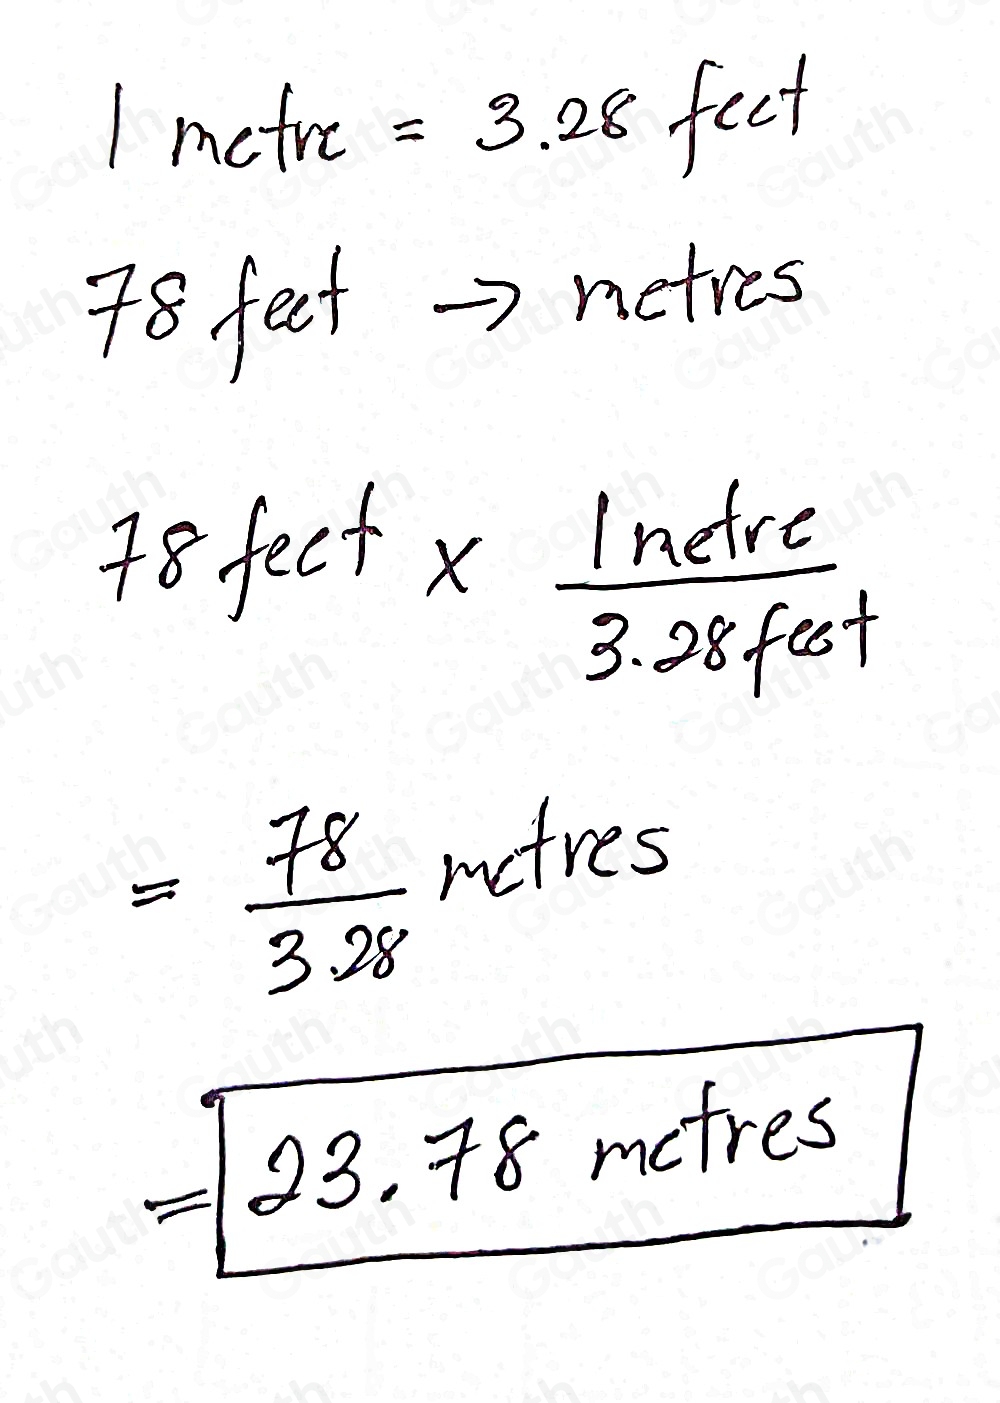 1 metre = 3.28 feet
78 feet → metres
78 feet x 1 metre
3.28 feet
= 78 metres
3.28
= 23.78 metres